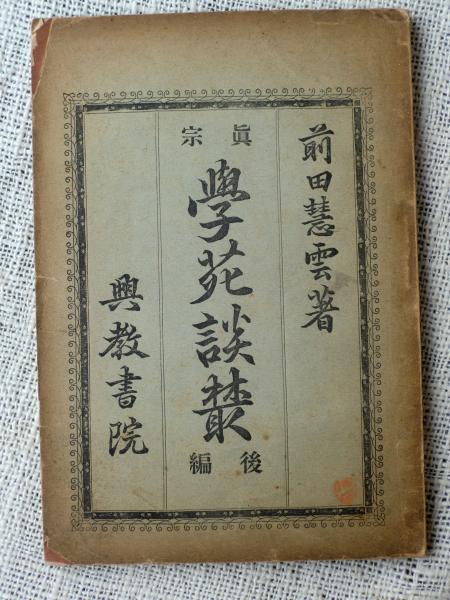 前田慧雲著
眞宗
學苑談叢
後編
興教書院